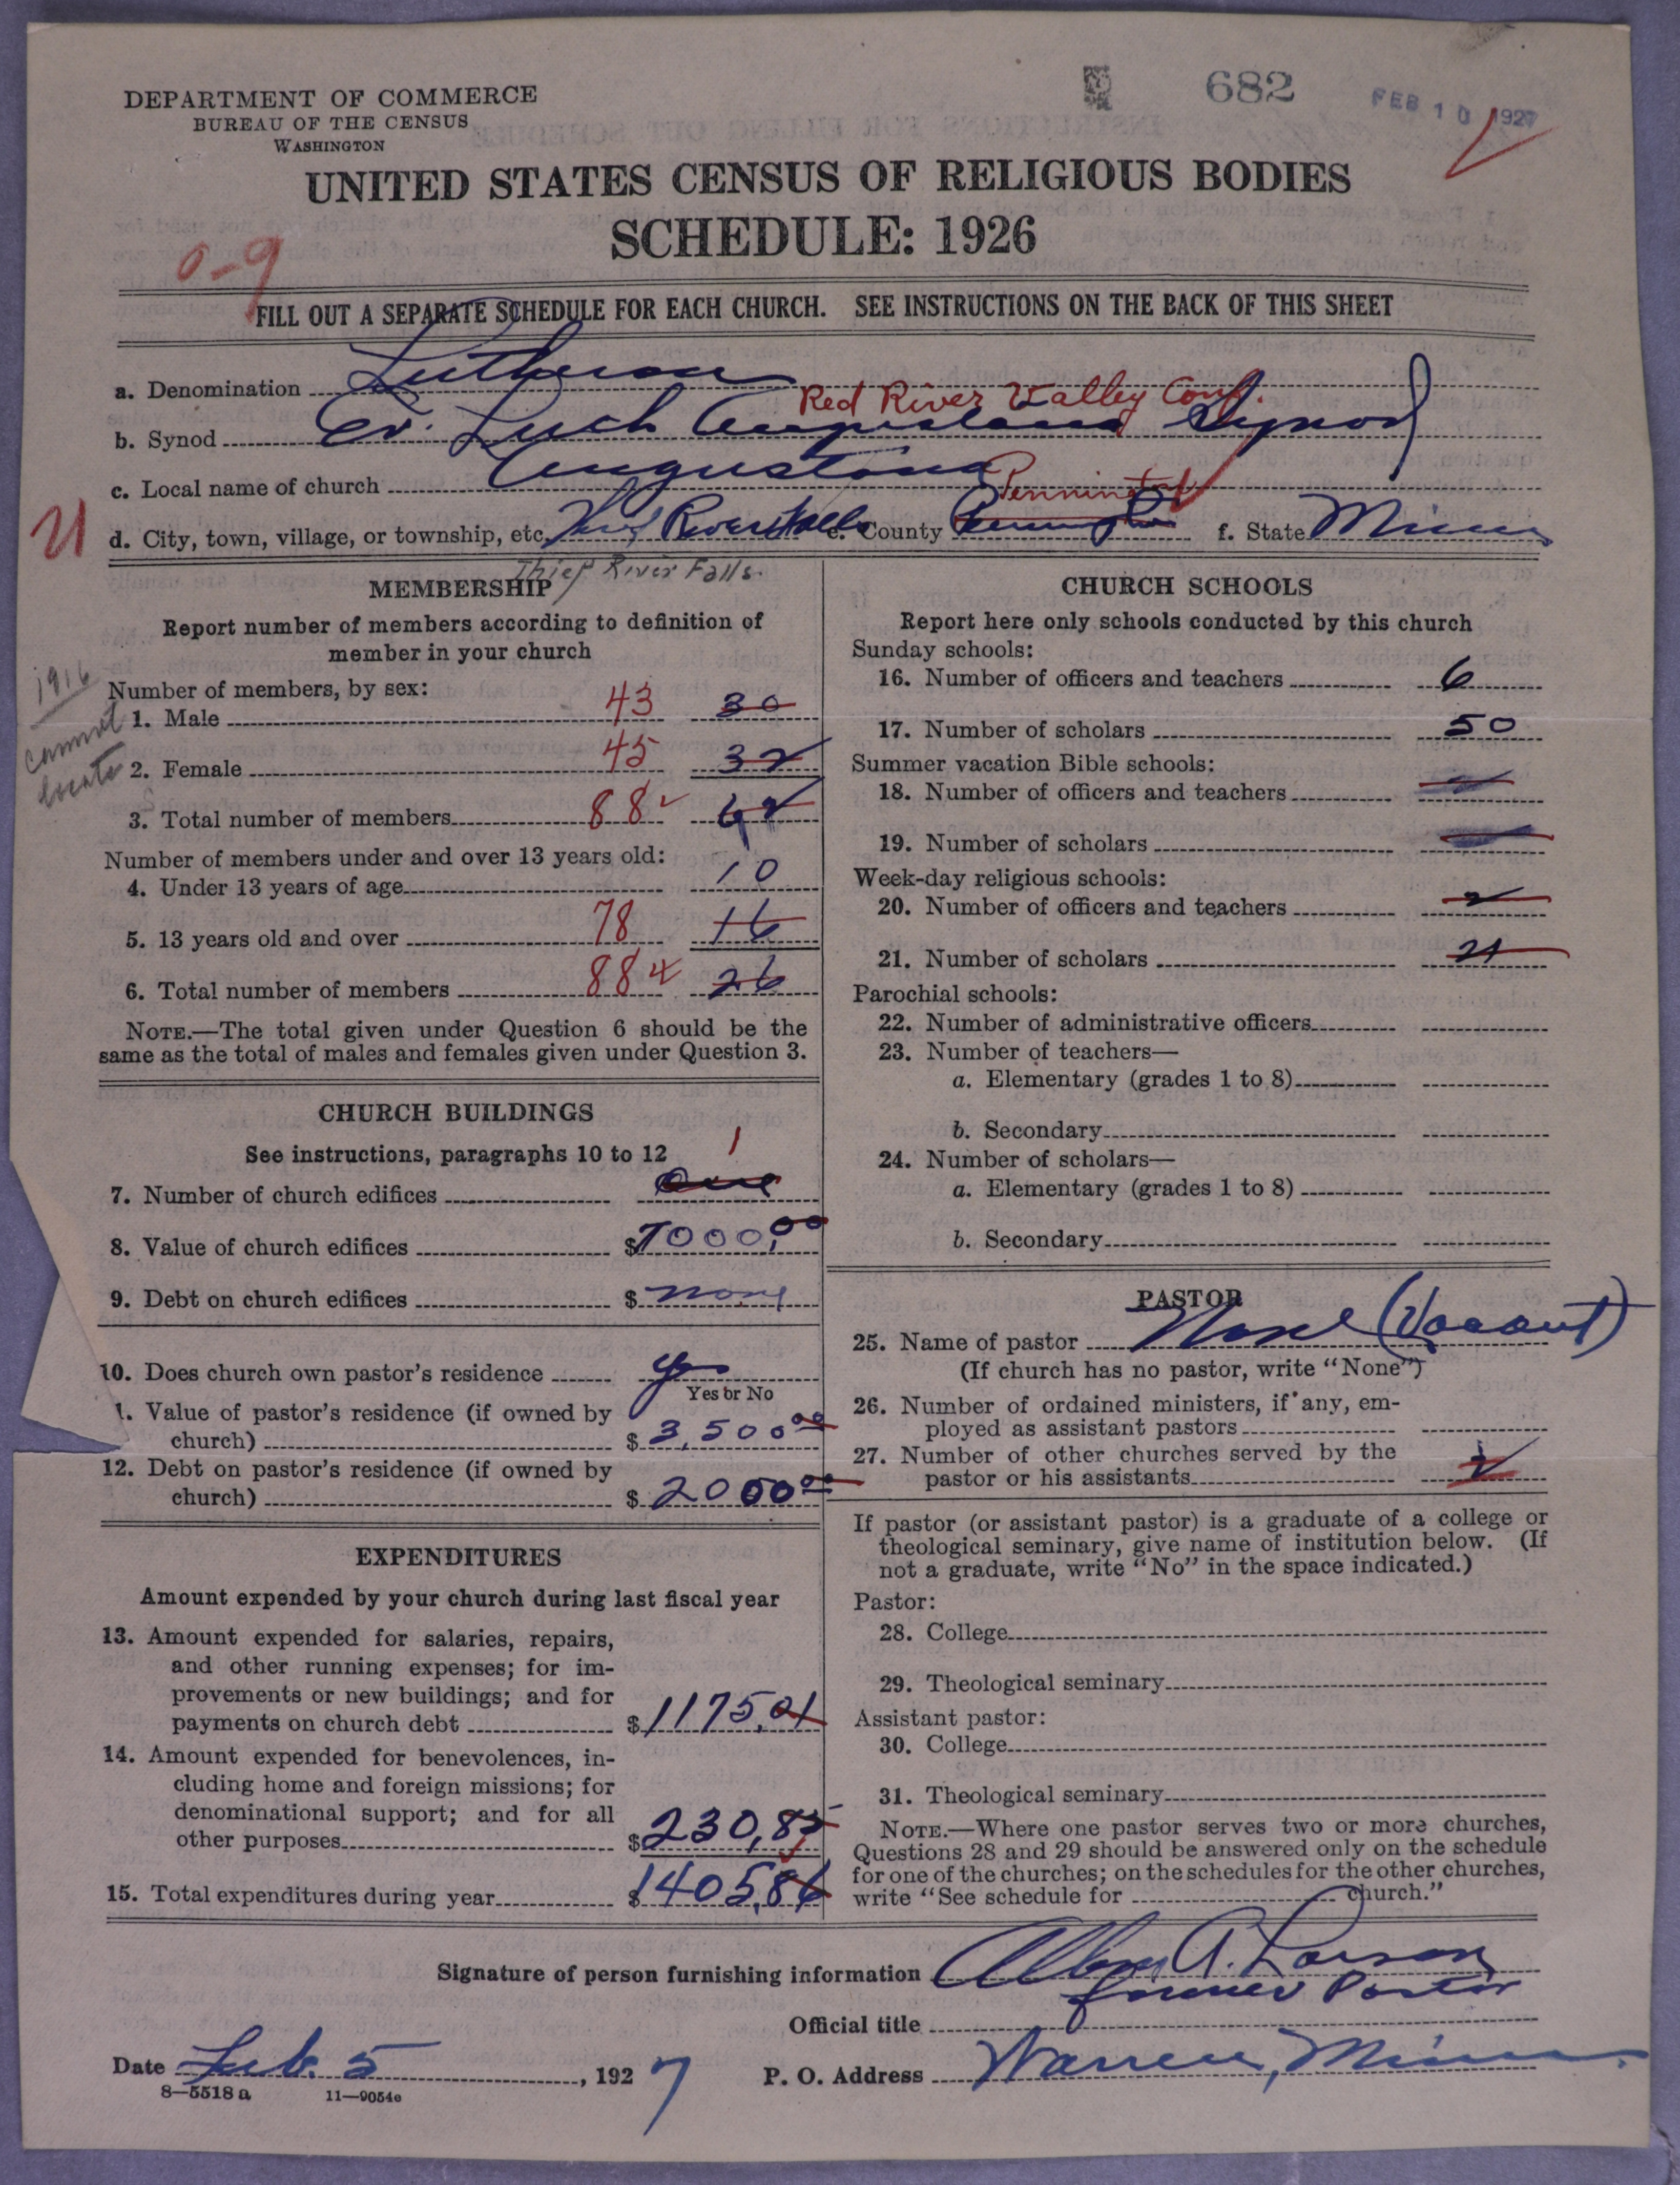 682
FEB 10 1927
DEPARTMENT OF COMMERCE
BUREAU OF THE CENSUS
WASHINGTON
UNITED STATES CENSUS OF RELIGIOUS BODIES
SCHEDULE: 1926
0-9
FILL OUT A SEPARATE SCHEDULE FOR EACH CHURCH. SEE INSTRUCTIONS ON THE BACK OF THIS SHEET
a. Denomination Lutheran
Red River Valley Conf.
b. Synod Ev. Luth Augustana Synod
c. Local name of church Augustana
Pennington
d. City, town, village, or township, etc. Thief River Falls e. County Pennington f. State Minn
Thief River Falls.
MEMBERSHIP
Report number of members according to definition of
member in your church
1916
cannot
locate
Number of members, by sex:
1. Male 43 30
2. Female 45 32
3. Total number of members 88 62
Number of members under and over 13 years old:
4. Under 13 years of age 10
5. 13 years old and over 78 16
6. Total number of members 88 26
NOTE.—The total given under Question 6 should be the
same as the total of males and females given under Question 3.
CHURCH BUILDINGS
See instructions, paragraphs 10 to 12
1
7. Number of church edifices One
8. Value of church edifices $7000,00
9. Debt on church edifices $ none
10. Does church own pastor's residence yes
Yes or No
1. Value of pastor's residence (if owned by
church) $3,500 00
12. Debt on pastor's residence (if owned by
church) $2000 00
EXPENDITURES
Amount expended by your church during last fiscal year
13. Amount expended for salaries, repairs,
and other running expenses; for im-
provements or new buildings; and for
payments on church debt $1175,01
14. Amount expended for benevolences, in-
cluding home and foreign missions; for
denominational support; and for all
other purposes $230,85
15. Total expenditures during year $1405,86
CHURCH SCHOOLS
Report here only schools conducted by this church
Sunday schools:
16. Number of officers and teachers 6
17. Number of scholars 50
Summer vacation Bible schools:
18. Number of officers and teachers
19. Number of scholars
Week-day religious schools:
20. Number of officers and teachers 2
21. Number of scholars 21
Parochial schools:
22. Number of administrative officers
23. Number of teachers—
a. Elementary (grades 1 to 8)
b. Secondary
24. Number of scholars—
a. Elementary (grades 1 to 8)
b. Secondary
PASTOR
25. Name of pastor None (Vacant)
(If church has no pastor, write "None")
26. Number of ordained ministers, if any, em-
ployed as assistant pastors
27. Number of other churches served by the
pastor or his assistants
If pastor (or assistant pastor) is a graduate of a college or
theological seminary, give name of institution below. (If
not a graduate, write "No" in the space indicated.)
Pastor:
28. College
29. Theological seminary
Assistant pastor:
30. College
31. Theological seminary
NOTE.—Where one pastor serves two or more churches,
Questions 28 and 29 should be answered only on the schedule
for one of the churches; on the schedules for the other churches,
write "See schedule for church."
Signature of person furnishing information A. Larson
former Pastor
Official title
Date Feb. 5, 1927 P. O. Address Warren, Minn.
8—5518 a 11—9054c